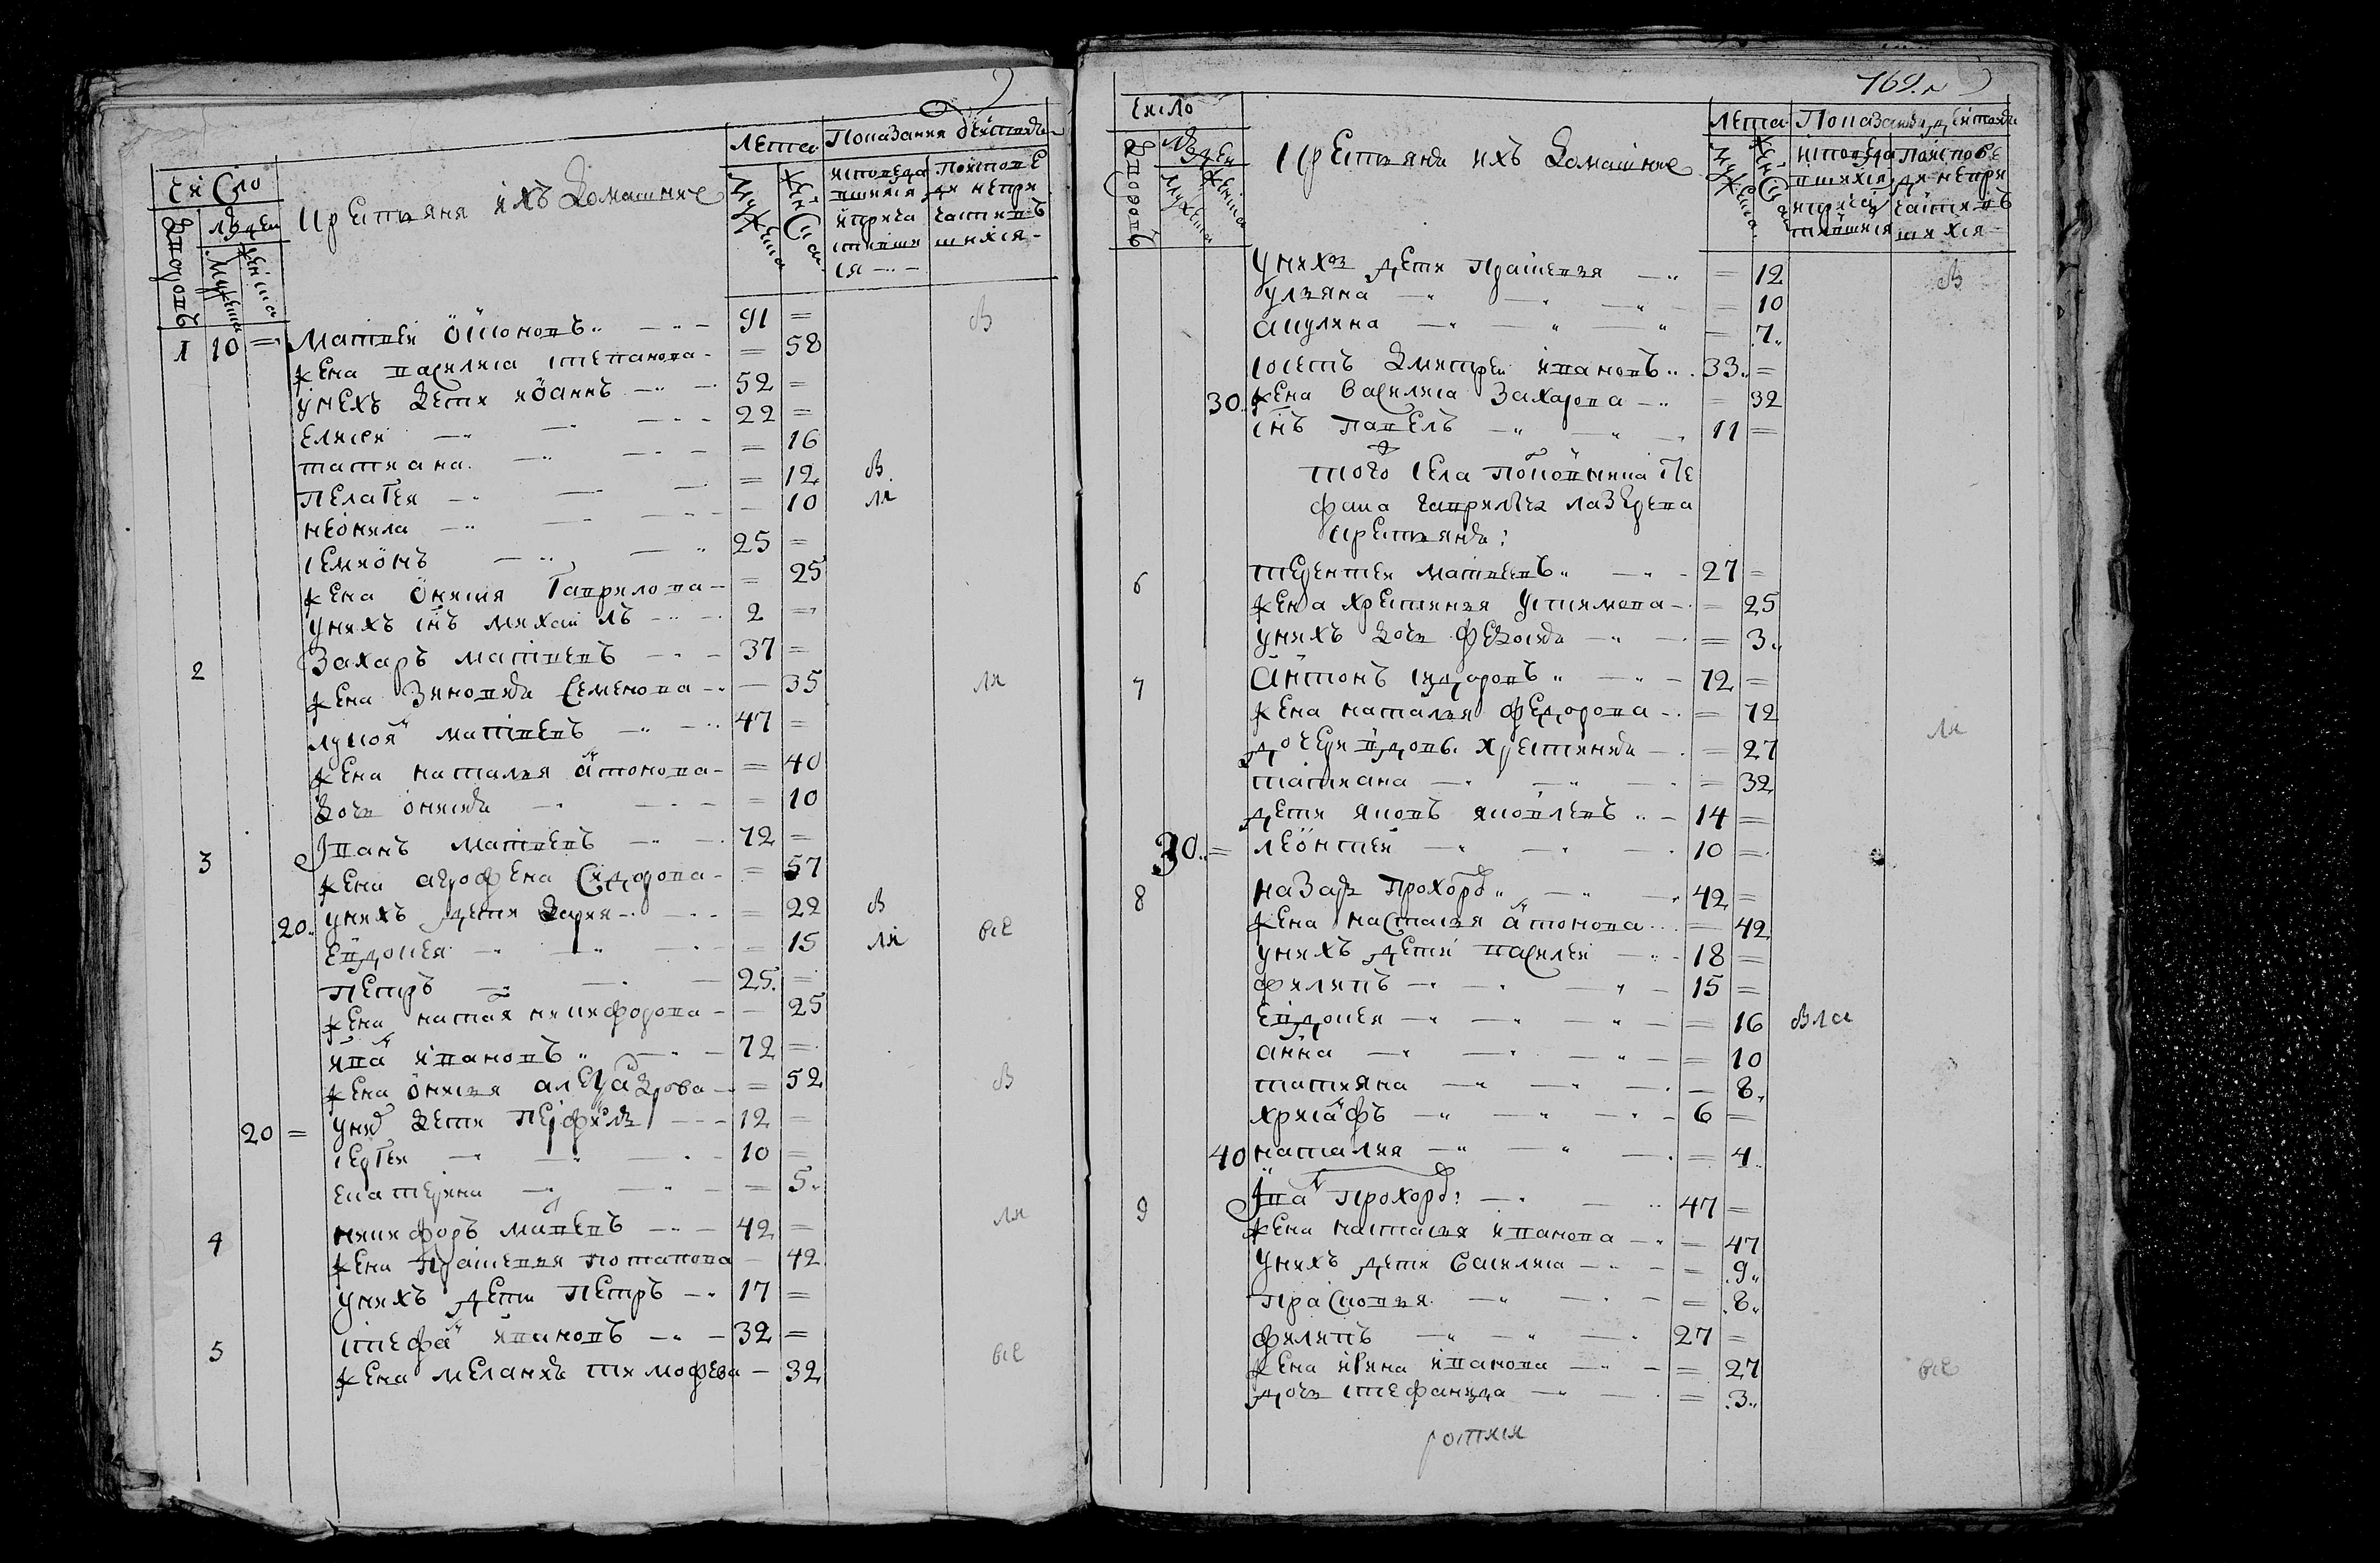 Число
Дворовъ
Людей
Мужеска
Женска
Крестьяня ихъ домашние
Лета
Мужеска
Женска
Показания действа
исповеда
вшияся
и прича
стивши
ся
по испове
ди непри
частивъ
шихся
1 10 = Матвеи Өтоновъ 91 = в
жена василиса степанова = 58
у нехъ дети иоаннъ 52 =
елисеи 22 =
татиана = 16
пелагея = 12 в
неонила = 10 ли
семионъ 25 =
жена онисия гаврилова = 25
у нихъ снъ михаилъ 2 =
2 Захаръ матвеевъ 37 =
жена зиновия семенова = 35 ли
лукоя матвеевъ 47 =
жена наталья антонова = 40
дочь онисия = 10
3 Іванъ матвеевъ 72 =
жена агрофена сидорова = 57
20 у нихъ дети дария = 22 в
евдокея = 15 ли все
петръ 25 =
жена настая никифорова = 25
иванъ ивановъ 72 =
жена онисья александрова = 52 в
20 = у них дети перфилъ 12 =
сергеи 10 =
екатерина = 5
4 никифоръ матвеевъ 42 = ли
жена прасковья потапова 42
у нихъ дети петръ 17 =
5 стефанъ ивановъ 32 =
жена меланя тимофева 32 все
162
Число
Дворовъ
Людей
Мужеска
Женска
Крестьяня ихъ домашние
Лета
Мужеска
Женска
Показания действа
исповеда
вшихся
и прича
стившися
по испове
ди непри
частивъ
шихся
у нихъ дети прасковья = 12 в
ульяна = 10
акулина = 7
сосетъ дмитреи ивановъ 33 =
30 жена василиса захарова = 32
снъ павелъ 11 =
того села поповнина Пе
фана гаврилы лазерева
крестьяня:
6 терентеи матвеевъ 27 =
жена христинья устимова = 25
у нихъ дочь федосия = 3
7 антонъ сидоровъ 72 =
жена наталья федорова = 72
дочери вдовы христиния = 27 ли
татиана = 32
дети яковъ яковлевъ 14 =
30 = леонтеи 10 =
8 назаръ прохоров 42 =
жена настасья антонова = 42
у нихъ дети василеи 18 =
филипъ 15 =
евдокея = 16 вли
анна = 10
татияна = 8
хрисанфъ 6 =
40 наталия = 4
9 Іван прохоров: 47 =
жена настасья иванова = 47
у нихъ дети василиса = 9
прасковья = 8
филипъ 27 =
жена ирина иванова = 27 все
дочь стефанида = 3